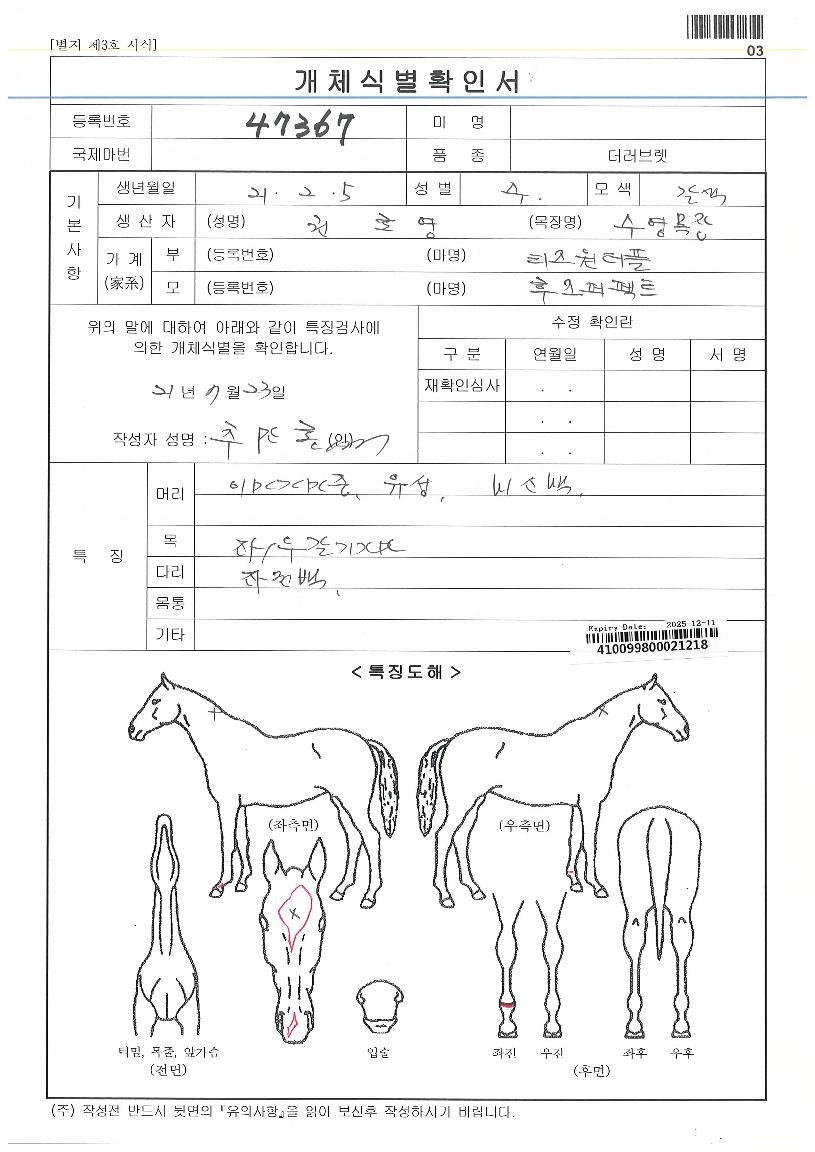 [별지 제3호 서식]
03
개체식별확인서
등록번호 47367 미 명
국제마번 품 종 더러브렛
기본사항
생년월일 21. 2. 5 성 별 수. 모 색 갈색
생 산 자 (성명) 권 호 영 (목장명) 수영목장
가 계 (家系) 부 (등록번호) (마명) 티즈원더풀
모 (등록번호) (마명) 후즈퍼펙트
위의 말에 대하여 아래와 같이 특징검사에
의한 개체식별을 확인합니다.
21년 7월 23일
작성자 성명 : (인)
수정 확인란
구 분 연월일 성 명 서 명
재확인심사 . .
. .
. .
특 징
머리 유성, 비소백,
목 좌/우
다리 좌전백,
몸통
기타
Expiry Date: 2025-12-11
410099800021218
< 특징도해 >
(좌측면) (우측면)
턱밑, 목줄, 앞가슴 입술 좌전 우전 좌후 우후
(전면) (후면)
(주) 작성전 반드시 뒷면의 『유의사항』을 읽어 보신후 작성하시기 바랍니다.